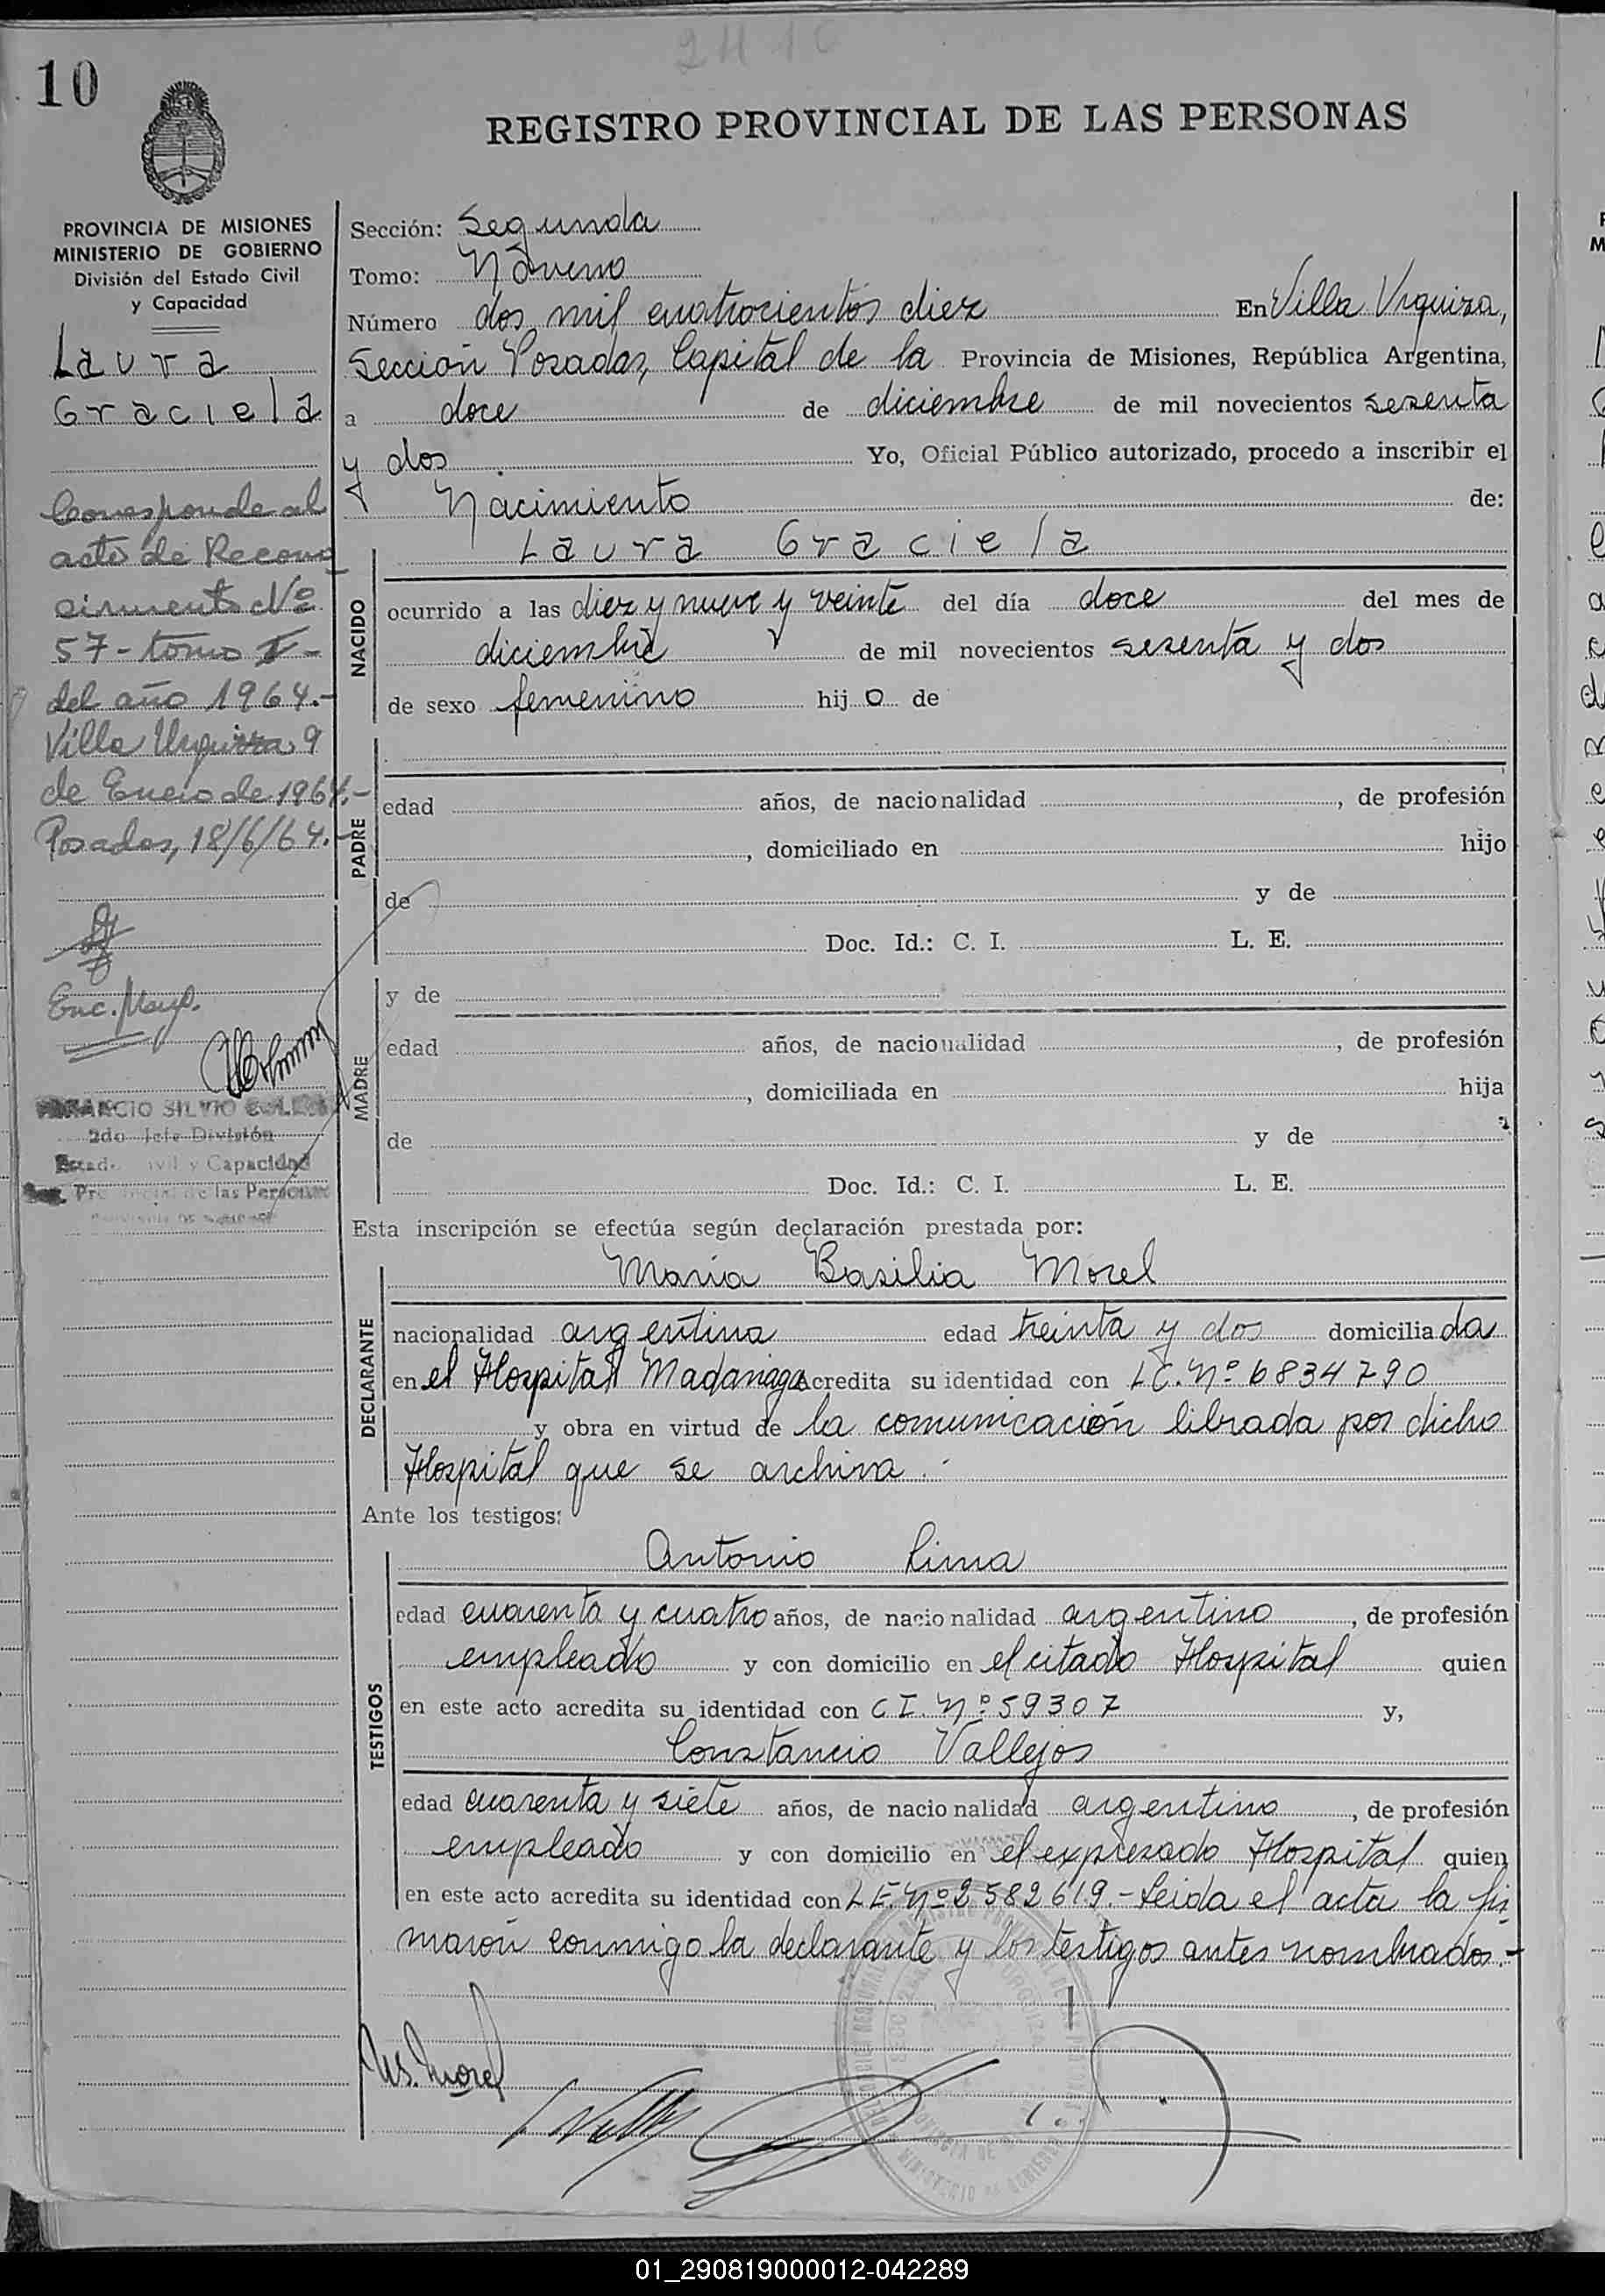 2410
10
REGISTRO PROVINCIAL DE LAS PERSONAS
PROVINCIA DE MISIONES
MINISTERIO DE GOBIERNO
División del Estado Civil
y Capacidad
Laura
Graciela
Corresponde al
acto de Recono
cimiento Nº
57 - tomo I -
del año 1964.-
Villa Urquiza 9
de Enero de 1964.-
Posadas, 18/6/64.-
Enc. Mayo.
SILVIO
2do Jefe División
Estado Civil y Capacidad
Reg. Provincial de las Personas
Sección: Segunda
Tomo: Noveno
Número dos mil cuatrocientos diez En Villa Urquiza,
Sección Posadas, Capital de la Provincia de Misiones, República Argentina,
a doce de diciembre de mil novecientos sesenta
y dos Yo, Oficial Público autorizado, procedo a inscribir el
Nacimiento de:
Laura Graciela
NACIDO
ocurrido a las diez y nueve y veinte del día doce del mes de
diciembre de mil novecientos sesenta y dos
de sexo femenino hijo de
PADRE
edad años, de nacionalidad , de profesión
, domiciliado en hijo
de y de
Doc. Id.: C. I. L. E.
MADRE
y de
edad años, de nacionalidad , de profesión
, domiciliada en hija
de y de
Doc. Id.: C. I. L. E.
Esta inscripción se efectúa según declaración prestada por:
DECLARANTE
María Basilia Morel
nacionalidad argentina edad treinta y dos domiciliada
en el Hospital Madariaga acredita su identidad con LC. Nº 6834790
y obra en virtud de la comunicación librada por dicho
Hospital que se archiva.-
Ante los testigos:
TESTIGOS
Antonio Lima
edad cuarenta y cuatro años, de nacionalidad argentino, de profesión
empleado y con domicilio en el citado Hospital quien
en este acto acredita su identidad con C I. Nº 59307 y,
Constancio Vallejos
edad cuarenta y siete años, de nacionalidad argentino, de profesión
empleado y con domicilio en el expresado Hospital quien
en este acto acredita su identidad con L E. Nº 2582619.- Leida el acta la fir
maron conmigo la declarante y los testigos antes nombrados.-
Morel
01_290819000012-042289